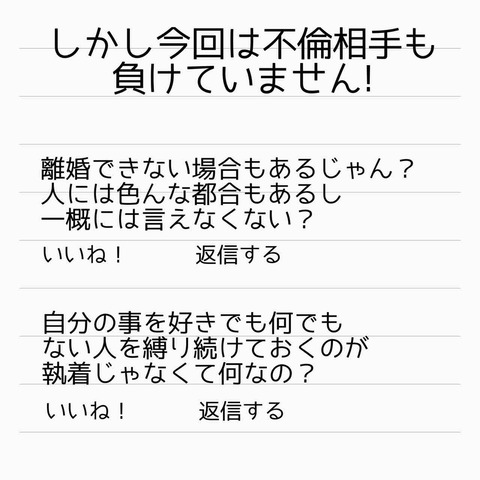 しかし今回は不倫相手も
負けていません!
離婚できない場合もあるじゃん？
人には色んな都合もあるし
一概には言えなくない？
いいね！ 返信する
自分の事を好きでも何でも
ない人を縛り続けておくのが
執着じゃなくて何なの？
いいね！ 返信する